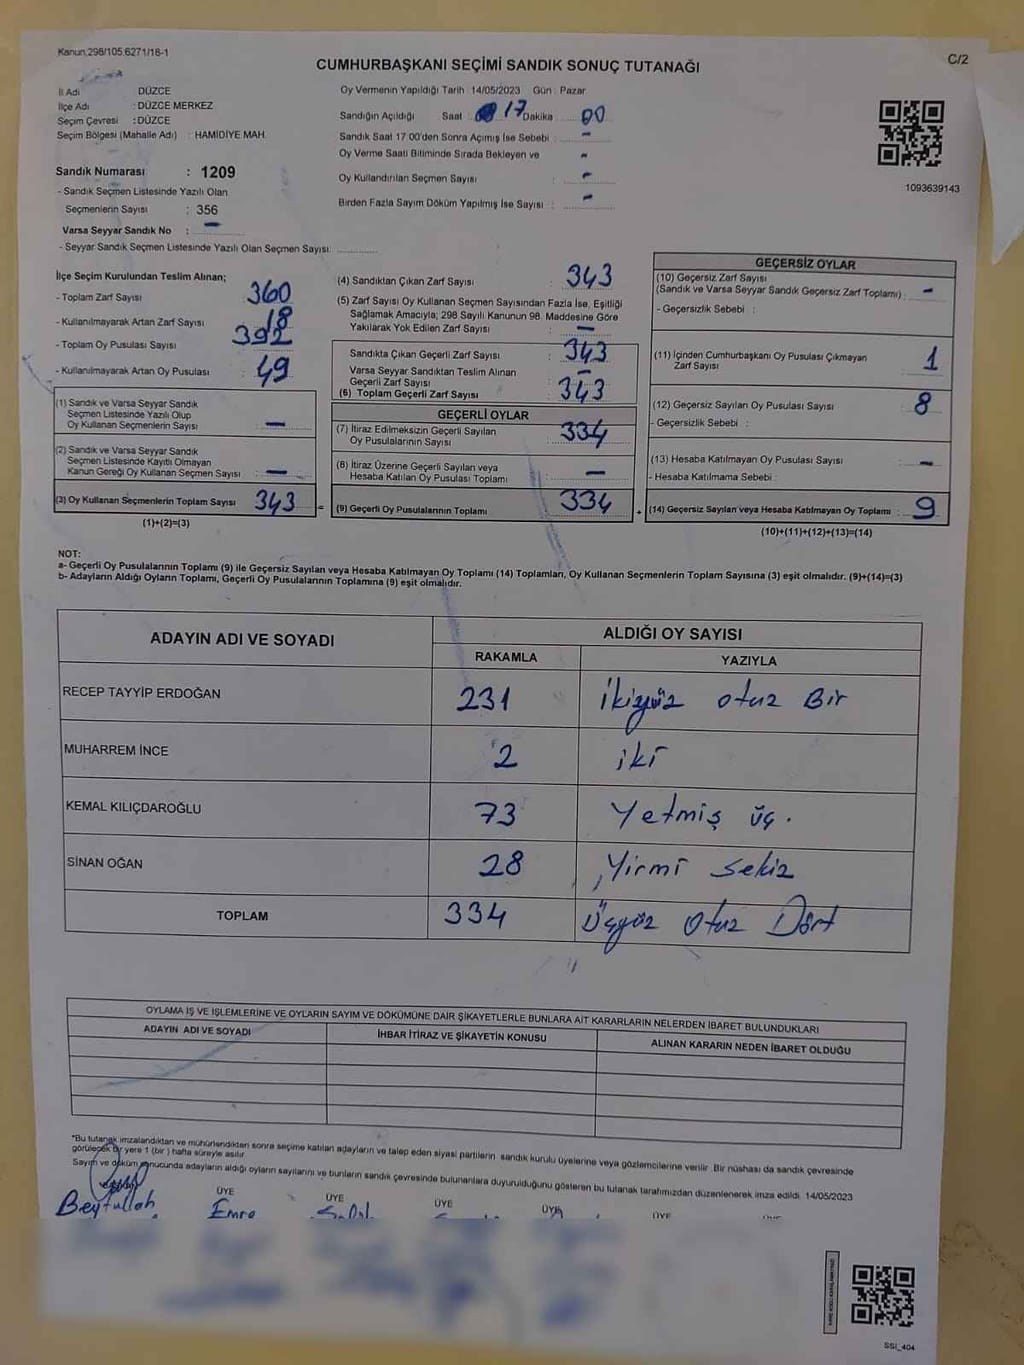 Kanun 298/105 6271/16-1
C/2
CUMHURBAŞKANI SEÇİMİ SANDIK SONUÇ TUTANAĞI
İl Adı DÜZCE
İlçe Adı : DÜZCE MERKEZ
Seçim Çevresi : DÜZCE
Seçim Bölgesi (Mahalle Adı) : HAMİDİYE MAH.
Sandık Numarası : 1209
- Sandık Seçmen Listesinde Yazılı Olan
Seçmenlerin Sayısı : 356
Varsa Seyyar Sandık No : -
- Seyyar Sandık Seçmen Listesinde Yazılı Olan Seçmen Sayısı:
Oy Vermenin Yapıldığı Tarih : 14/05/2023 Gün : Pazar
Sandığın Açıldığı Saat 17 Dakika 00
Sandık Saat 17 00'den Sonra Açımış İse Sebebi : -
Oy Verme Saati Bitiminde Sırada Bekleyen ve -
Oy Kullandırılan Seçmen Sayısı : -
Birden Fazla Sayım Döküm Yapılmış İse Sayısı : -
1093639143
İlçe Seçim Kurulundan Teslim Alınan;
- Toplam Zarf Sayısı 360
- Kullanılmayarak Artan Zarf Sayısı 18
- Toplam Oy Pusulası Sayısı 392
- Kullanılmayarak Artan Oy Pusulası : 49
(1) Sandık ve Varsa Seyyar Sandık
Seçmen Listesinde Yazılı Olup
Oy Kullanan Seçmenlerin Sayısı : -
(2) Sandık ve Varsa Seyyar Sandık
Seçmen Listesinde Kayıtlı Olmayan
Kanun Gereği Oy Kullanan Seçmen Sayısı : -
(3) Oy Kullanan Seçmenlerin Toplam Sayısı : 343 =
(1)+(2)=(3)
(4) Sandıktan Çıkan Zarf Sayısı : 343
(5) Zarf Sayısı Oy Kullanan Seçmen Sayısından Fazla İse, Eşitliği
Sağlamak Amacıyla; 298 Sayılı Kanunun 98. Maddesine Göre
Yakılarak Yok Edilen Zarf Sayısı : -
Sandıkta Çıkan Geçerli Zarf Sayısı : 343
Varsa Seyyar Sandıktan Teslim Alınan
Geçerli Zarf Sayısı : -
(6) Toplam Geçerli Zarf Sayısı : 343
GEÇERLİ OYLAR
(7) İtiraz Edilmeksizin Geçerli Sayılan
Oy Pusulalarının Sayısı : 334
(8) İtiraz Üzerine Geçerli Sayılan veya
Hesaba Katılan Oy Pusulası Toplamı : -
(9) Geçerli Oy Pusulalarının Toplamı : 334 +
GEÇERSİZ OYLAR
(10) Geçersiz Zarf Sayısı
(Sandık ve Varsa Seyyar Sandık Geçersiz Zarf Toplamı) : -
- Geçersizlik Sebebi :
(11) İçinden Cumhurbaşkanı Oy Pusulası Çıkmayan
Zarf Sayısı : 1
(12) Geçersiz Sayılan Oy Pusulası Sayısı : 8
- Geçersizlik Sebebi :
(13) Hesaba Katılmayan Oy Pusulası Sayısı : -
- Hesaba Katılmama Sebebi :
(14) Geçersiz Sayılan veya Hesaba Katılmayan Oy Toplamı : 9
(10)+(11)+(12)+(13)=(14)
NOT:
a- Geçerli Oy Pusulalarının Toplamı (9) ile Geçersiz Sayılan veya Hesaba Katılmayan Oy Toplamı (14) Toplamları, Oy Kullanan Seçmenlerin Toplam Sayısına (3) eşit olmalıdır. (9)+(14)=(3)
b- Adayların Aldığı Oyların Toplamı, Geçerli Oy Pusulalarının Toplamına (9) eşit olmalıdır.
ADAYIN ADI VE SOYADI ALDIĞI OY SAYISI
RAKAMLA YAZIYLA
RECEP TAYYİP ERDOĞAN 231 İkiyüz otuz Bir
MUHARREM İNCE 2 iki
KEMAL KILIÇDAROĞLU 73 Yetmiş üç.
SİNAN OĞAN 28 Yirmi sekiz
TOPLAM 334 Üçyüz Otuz Dört
OYLAMA İŞ VE İŞLEMLERİNE VE OYLARIN SAYIM VE DÖKÜMÜNE DAİR ŞİKAYETLERLE BUNLARA AİT KARARLARIN NELERDEN İBARET BULUNDUKLARI
ADAYIN ADI VE SOYADI İHBAR İTİRAZ VE ŞİKAYETİN KONUSU ALINAN KARARIN NEDEN İBARET OLDUĞU
*Bu tutanak imzalandıktan ve mühürlendikten sonra seçime katılan adayların ve talep eden siyasi partilerin sandık kurulu üyelerine veya gözlemcilerine verilir. Bir nüshası da sandık çevresinde
görülecek bir yere 1 (bir) hafta süreyle asılır
Sayım ve döküm sonucunda adayların aldığı oyların sayılarını ve bunların sandık çevresinde bulunanlara duyurulduğunu gösteren bu tutanak tarafımızdan düzenlenerek imza edildi. 14/05/2023
ÜYE ÜYE ÜYE ÜYE ÜYE
Beytullah Emre
SSİ_404